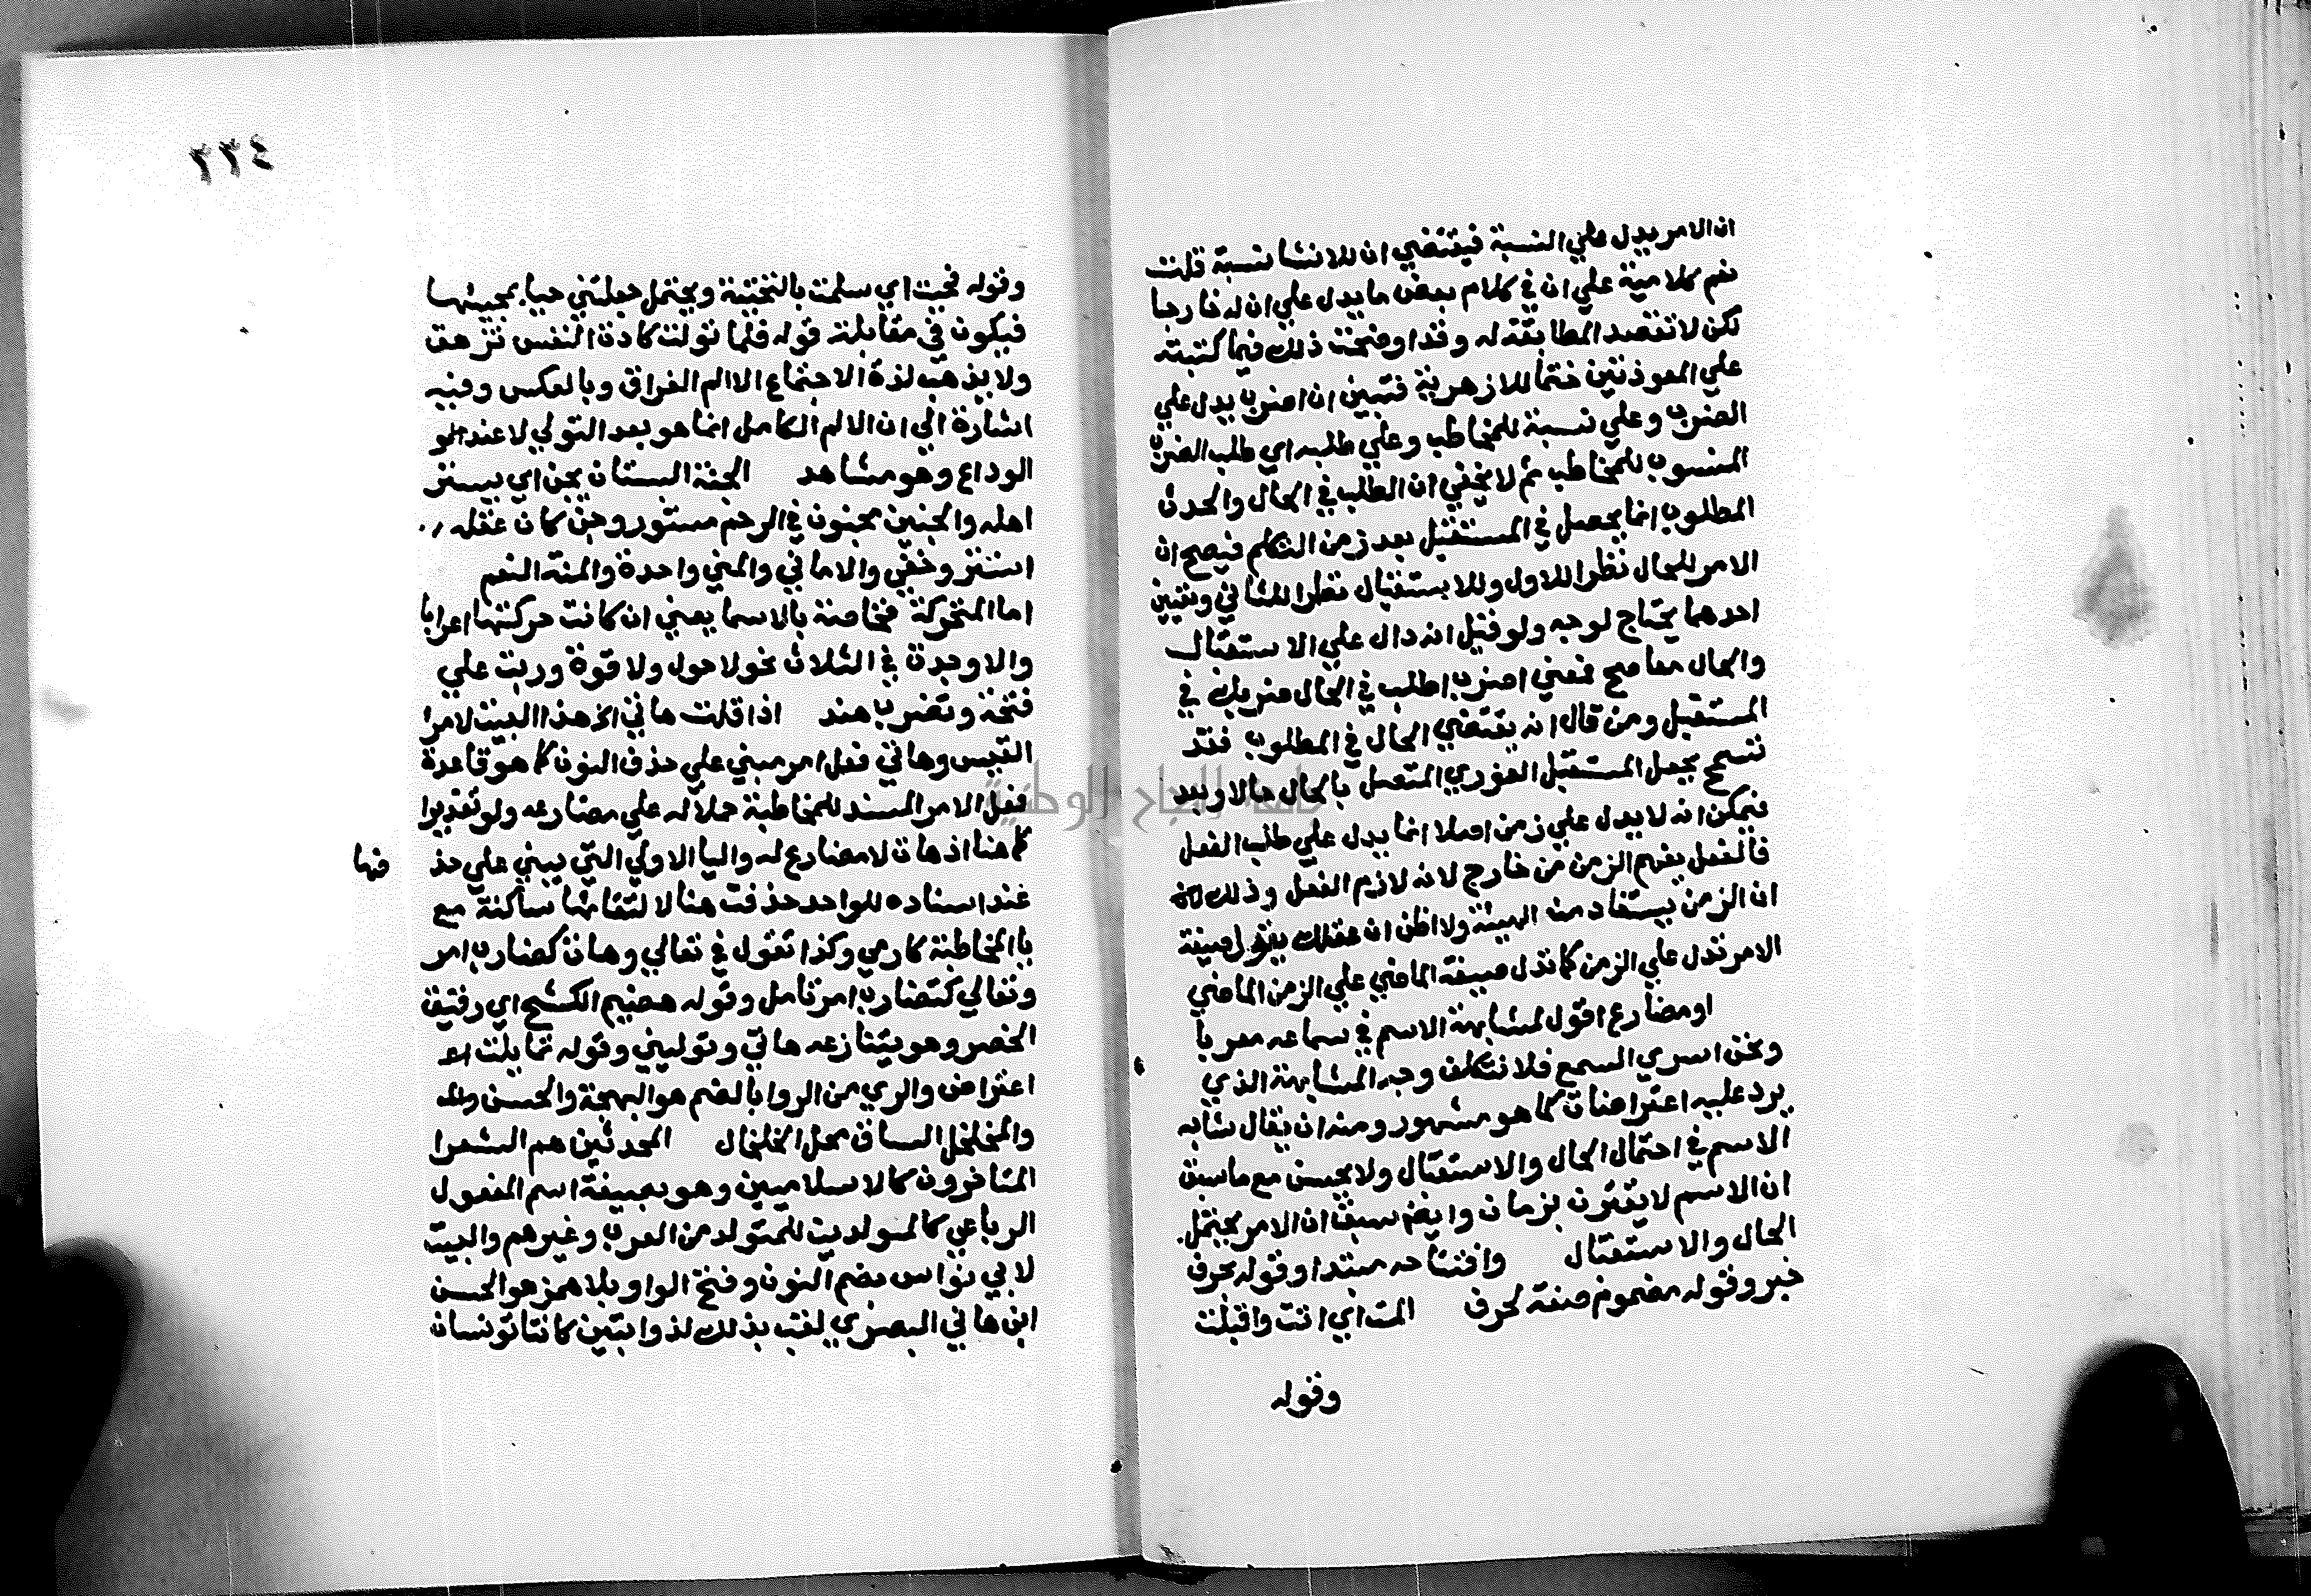 ان الامر يدل علي النسبة فيقتضي ان للانشا نسبة قلت
نعم كلامية علي ان في كلام بعض ما يدل علي ان له خارجا
لكن لا تقصد المطابقة له وقد اوضحت ذلك فيما كتبته
علي المعوذتين ختما للازهرية فتبين ان اضرب يدل علي
الضرب وعلي نسبة للمخاطب وعلي طلبه اي طلب الضرب
المنسوب للمخاطب ثم لا يخفي ان الطلب في الحال والحدث
المطلوب انما يحصل في المستقبل بعد زمن التكلم فيصح ان
الامر للحال نظرا للاول وللاستقبال نظرا للثاني وتعيين
احدهما يحتاج لوجه ولو قيل انه دال علي الاستقبال
والحال معا صح فمعني اضرب اطلب في الحال ضربك في
المستقبل ومن قال انه يقتضي الحال في المطلوب فقد
تسمح بجعل المستقبل الفوري المتصل بالحال حالا وبعد
فيمكن انه لا يدل علي زمن اصلا انما يدل علي طلب الفعل
فالفعل يفهم الزمن من خارج لانه لازم الفعل وذلك
ان الزمن يستفاد من الهيئة ولا اظن ان عقلك يقول صيغة
الامر تدل علي الزمن كما تدل صيغة الماضي علي الزمن الماضي
او مضارع اقول لمشابهة الاسم في سماعه معربا
ونحن اسري السمع فلا نتكلف وجه المشابهة الذي
يرد عليه اعتراضات كما هو مشهور ومنه ان يقال شابه
الاسم في احتمال الحال والاستقبال ولا يحسن مع ما سبق
ان الاسم لا يقترن بزمان وايضم سبق ان الامر يحتمل
الحال والاستقبال وافتتاحه مبتدا وقوله بحرف
خبر وقوله مضموم صفة لحرف المت اي اتت واقبلت
وقوله
٢٣٤
وقوله فحيت اي سلمت بالتحية ويحتمل جعلتني حيا بمجيئها
فيكون في مقابلة قوله فلما تولت كادت النفس تزهق
ولا يذهب لذة الاجتماع الا الم الفراق وبالعكس وفيه
اشارة الي ان الالم الكامل انما هو بعد التولي لا عند الو
الوداع وهو مشاهد الجنة البستان يجن اي يستر
اهله والجنين مجنون في الرحم مستور وجن كان عقله
استتر وخفي والاماني والمني واحدة والمنة النعم
اما المتحركة فخاصة بالاسما يعني ان كانت حركتها اعرابا
والا وجدت في الثلاث نحو لا حول ولا قوة وربت علي
فتحة وتضرب هند اذا قلت هاتي الخ هذا البيت لامرا
القيس وهاتي فعل امر مبني علي حذف النون كما هو قاعدة
فعل الامر المسند للمخاطبة حملا له علي مضارعه ولو تقديرا
كما هنا اذ هات لا مضارع له واليا الاولي التي يبني علي حذ
فها
عند اسناده للواحد حذفت هنا لالتقائها ساكنة مع
يا المخاطبة كارمي وكذا تقول في تعالي وهات كضارب امر
وتعالي كتضارب امر تامل وقوله هضيم الكشح اي رقيق
الخصر وهو يتنازعه هاتي وتوليني وقوله تمايلت اعـ
اعتراض والري من الروا بالضم هو البهجة والحسن
والمخلخل الساق محل الخلخال المحدثين هم الشعرا
المتاخرون كالاسلاميين وهو بصيغة اسم المفعول
الرباعي كالمولدين للمتولد من العرب وغيرهم والبيت
لابي نواس بضم النون وفتح الواو بلا همز هو الحسن
ابن هاني البصري لقب بذلك لذوابتين كانتا تونسان